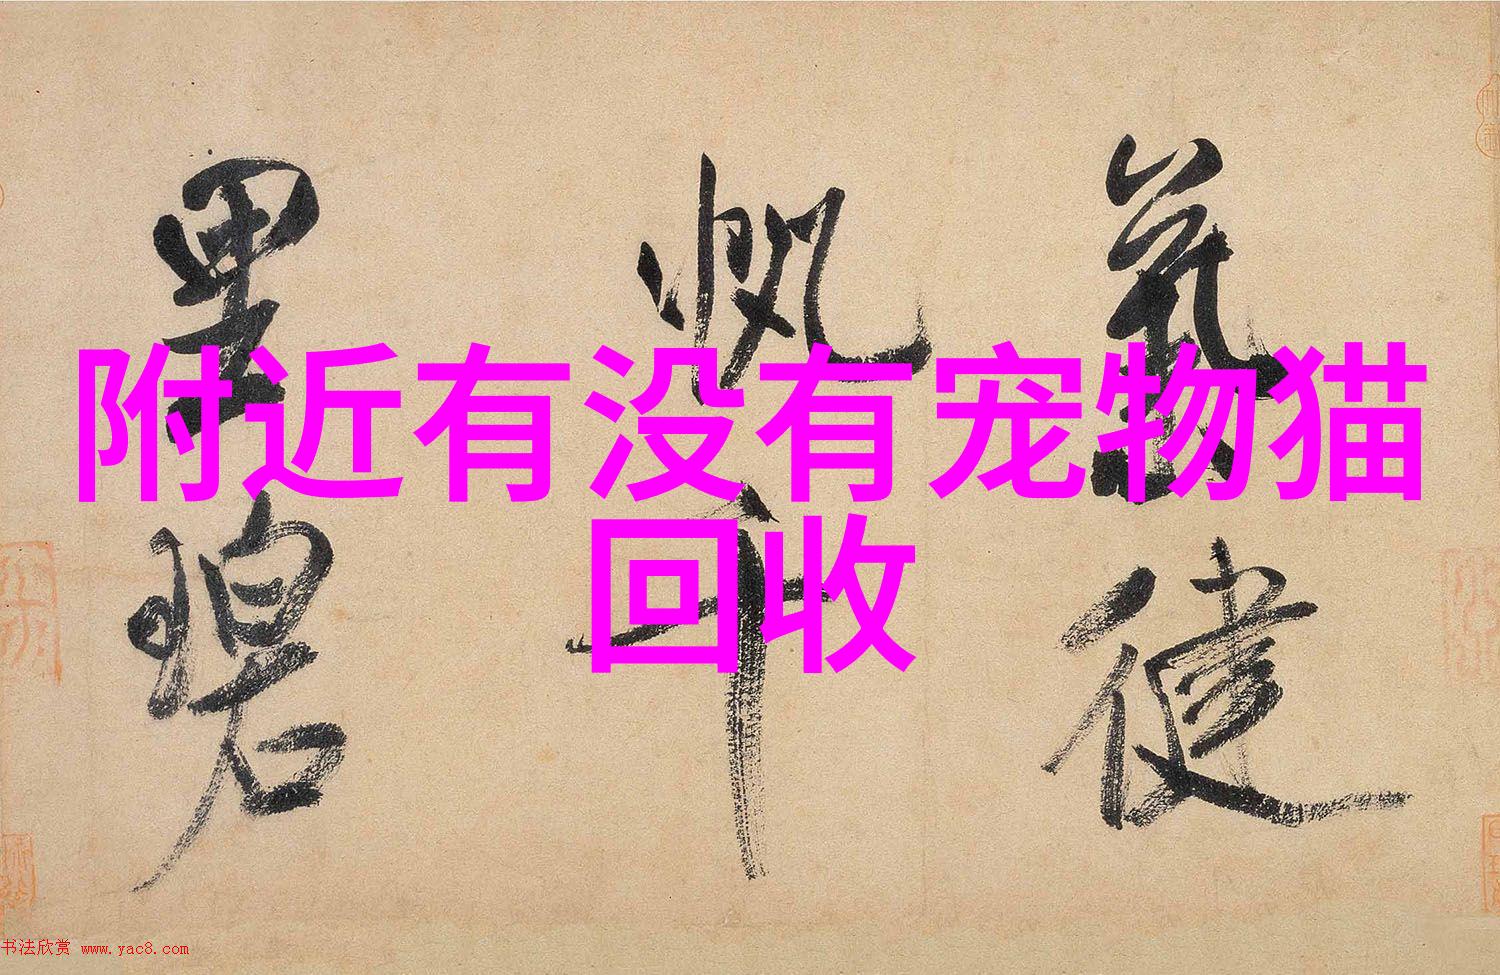 附近有没有宠物猫
回收
健
千
帆
里
碧
书法欣赏 www.yac8.com